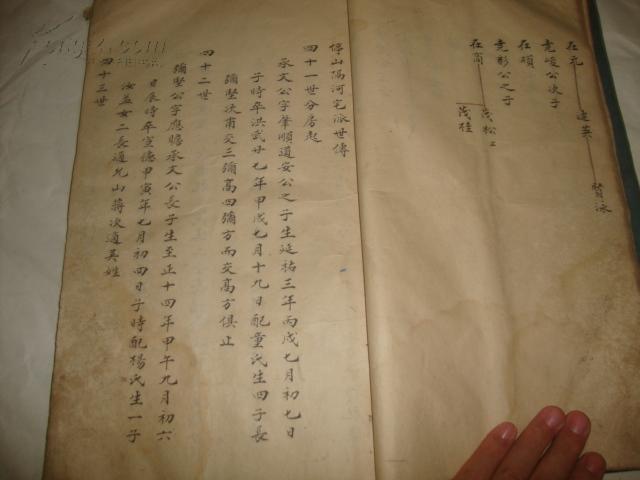 在元 達英 贊泳
堯峻公次子
在碩
堯彤公之子
在商 茂松止
茂桂
停山陽河宅派世傳
四十一世分房起
承文公字肇順道安公之子生延祐三年丙戌七月初七日
子時卒洪武廿七年甲戌七月十九日配童氏生四子長
彌堅次甫交三彌高四彌方而交高方俱止
四十二世
彌堅公字應瞻承文公長子生至正十四年甲午九月初六
日辰時卒宣德甲寅年七月初四日子時配楊氏生一子
汝益女二長適允山蔣次適吳姓
四十三世